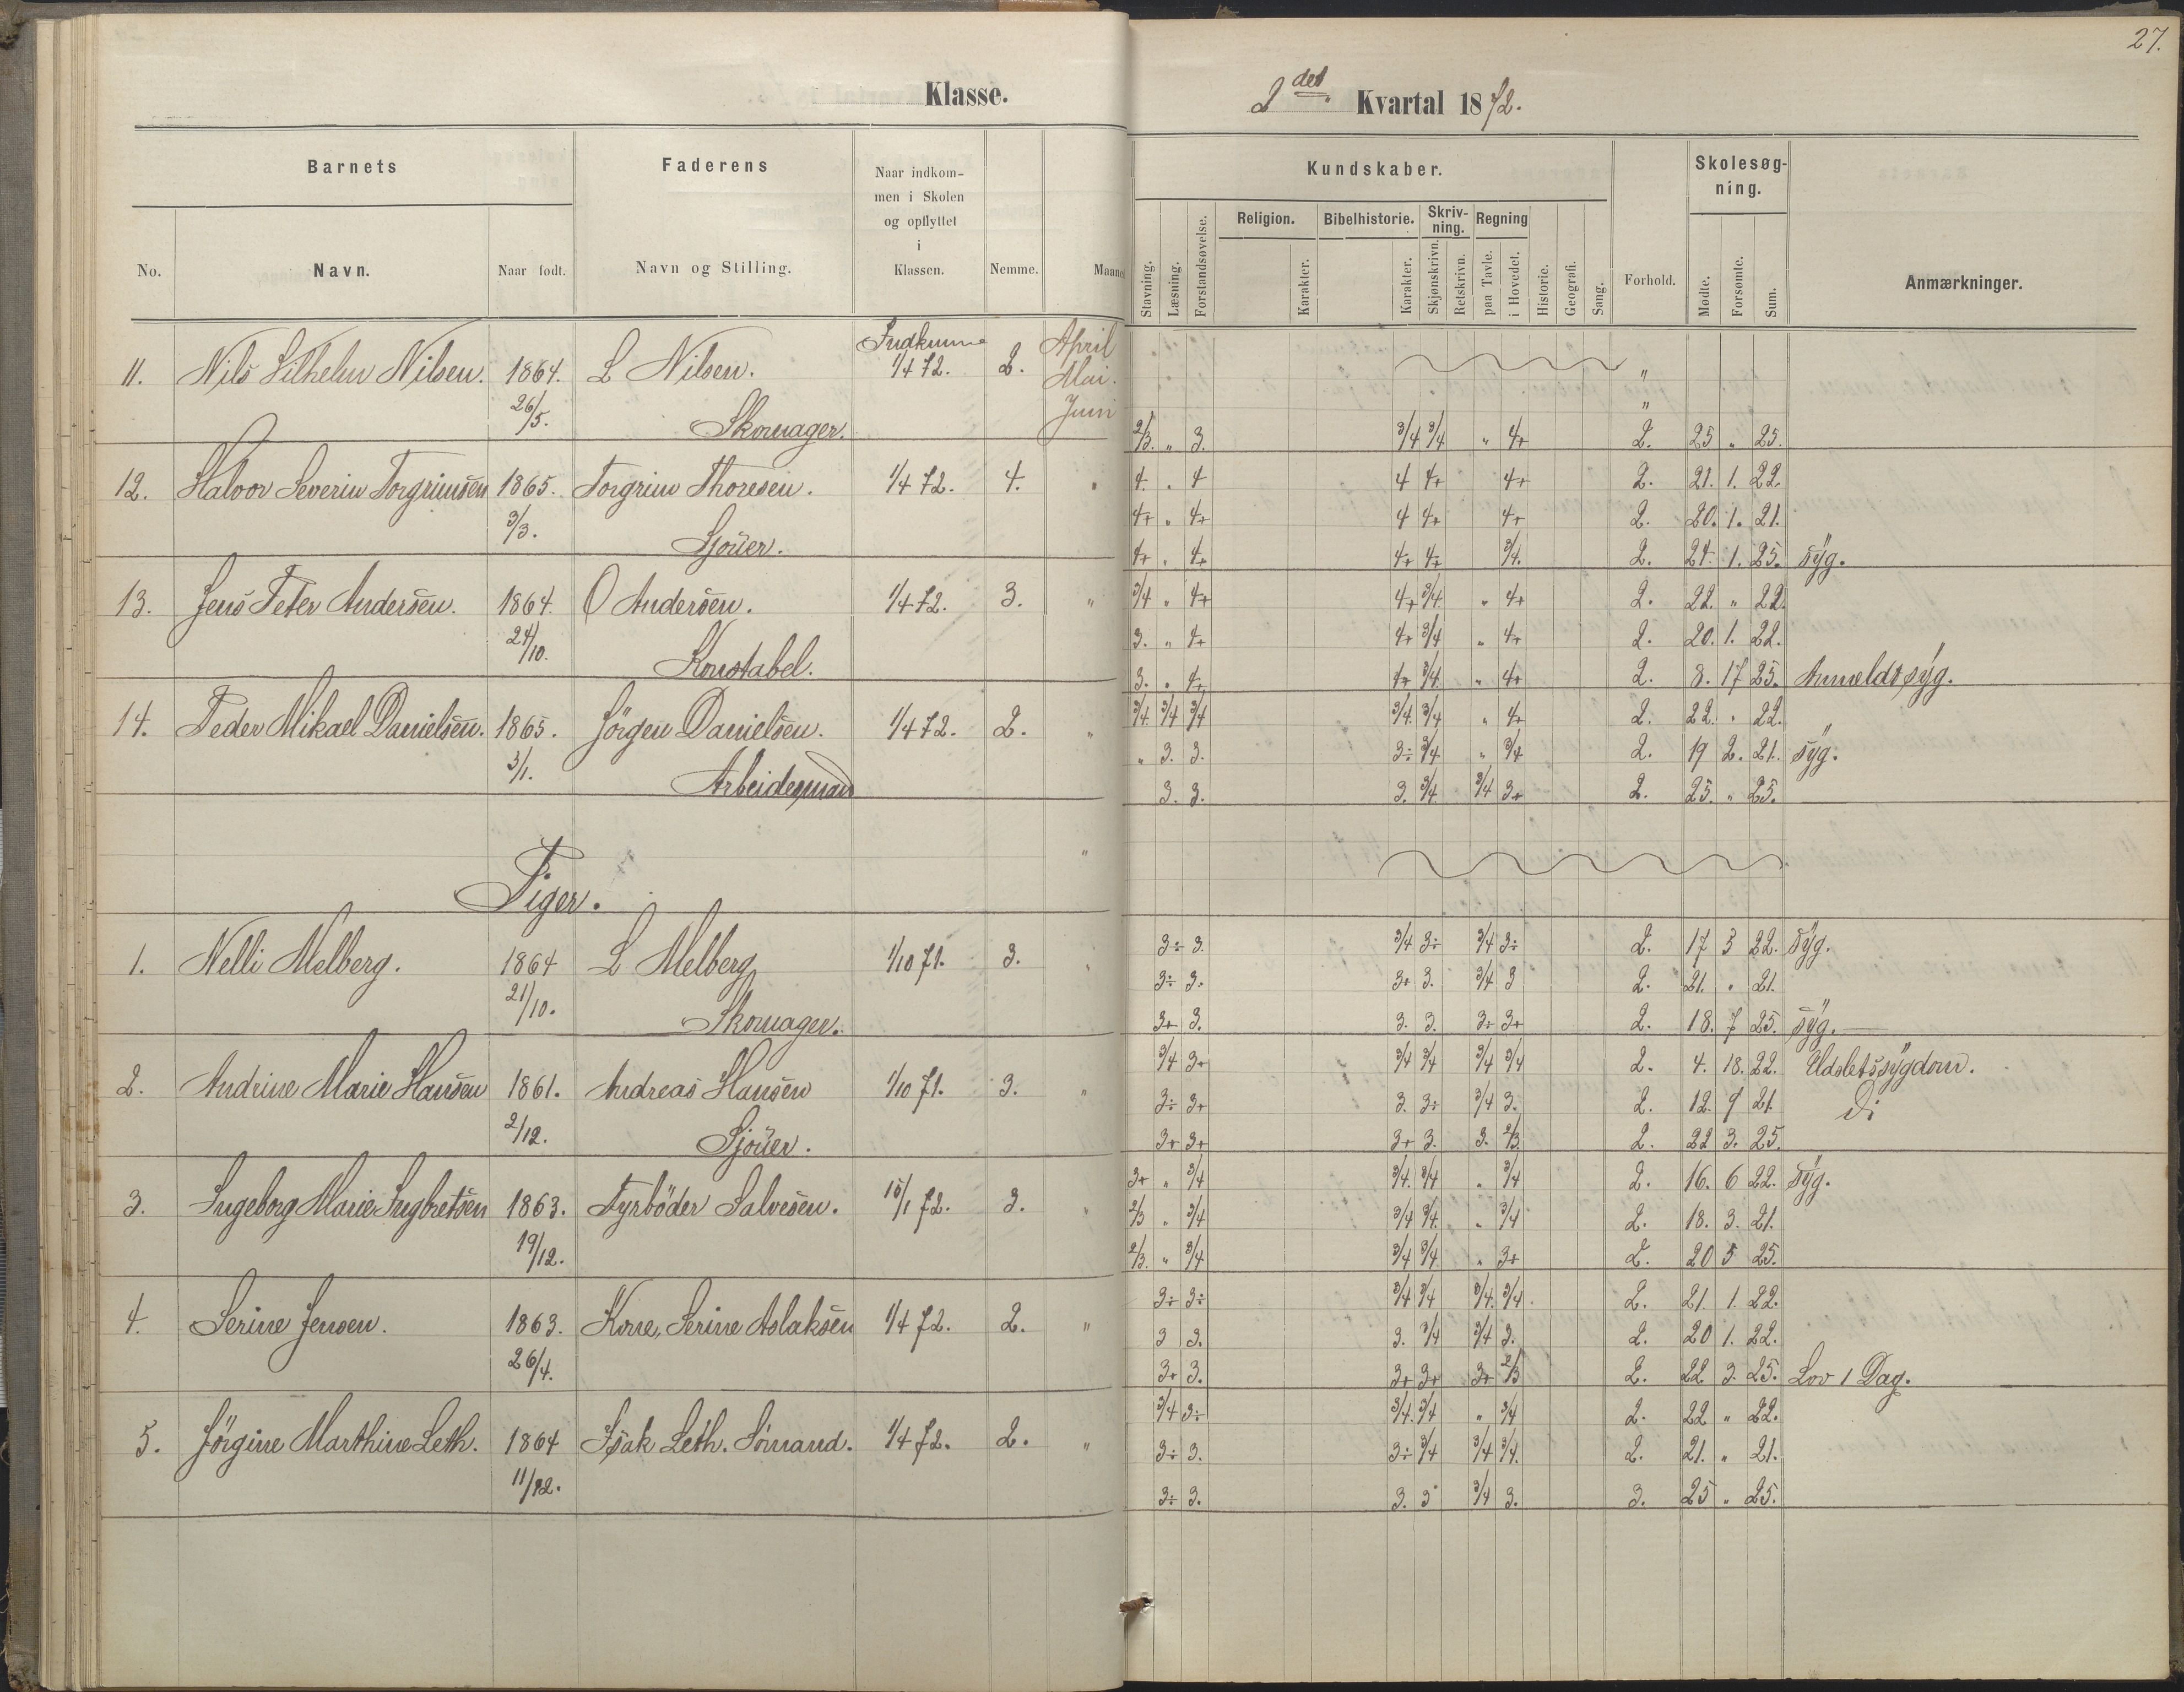 27.
Klasse.
2det Kvartal 1872.
Barnets
Faderens
Naar indkom-
men i Skolen
og opflyttet
i
Klassen.
No.
Navn.
Naar født.
Navn og Stilling.
Nemme.
Maaned
Kundskaber.
Skolesøg-
ning.
Stavning.
Læsning.
Forstandsøvelse.
Religion.
Bibelhistorie.
Skriv-
ning.
Regning
Karakter.
Karakter.
Skjønskrivn.
Retskrivn.
paa Tavle.
i Hovedet.
Historie.
Geografi.
Sang.
Forhold.
Mødte.
Forsømte.
Sum.
Anmærkninger.
11. Nils Vilhelm Nilsen. 1864. L Nilsen. Indkomne 1/4 72. 2. April "
26/5. Mai. "
Skomager. Juni 2/3. „ 3. 3/4 3/4 „ 4+ 2. 25 „ 25.
12. Halvor Severin Torgrimsen 1865. Torgrim Thoresen. 1/4 72. 4. " 4. „ 4 4 4+ 4+ 2. 21. 1. 22.
3/3. 4+ „ 4+ 4 4+ 4+ 2. 20. 1. 21.
Sjouer. 4+ „ 4+ 4+ 4+ 3/4. 2. 24. 1. 25. syg.
13. Jens Peter Andersen. 1864. O Andersen. 1/4 72. 3. " 3/4 „ 4+ 4+ 3/4 „ 4+ 2. 22. „ 22.
24/10. 3. „ 4+ 4+ 3/4 „ 4+ 2. 20. 1. 22.
Konstabel. 3. „ 4+ 4+ 3/4 „ 4+ 2. 8. 17 25. Anmeldt syg.
14. Peder Mikael Danielsen. 1865. Jörgen Danielsen. 1/4 72. 2. " 3/4 3/4 3/4 3/4. 3/4 „ 4+ 2. 22. „ 22.
3/1. „ 3. 3. 3÷ 3/4 „ 3/4 2. 19 2. 21. syg.
Arbeidesmand 3. 3. 3. 3/4 3/4 3+ 2. 25. „ 25.
Piger.
1. Nelli Melberg. 1864 L Melberg 1/10 71. 3. " 3÷ 3. 3/4 3÷ 3/4 3÷ 2. 17 3 22. syg.
21/10. 3÷ 3. 3+ 3. 3/4 3 2. 21. „ 21.
Skomager. 3+ 3. 3. 3. 3÷ 3+ 2. 18. 7 25. syg.
2. Andrine Marie Hansen 1861. Andreas Hansen 1/10 71. 3. " 3/4 3+ 3/4 3/4 3/4 3/4 2. 4. 18. 22. Udsletssygdom.
2/12. 3÷ 3+ 3. 3÷ 3/4 3. 2. 12. 9 21. Di
Sjouer. 3+ 3+ 3+ 3. 3. 2/3. 2. 22 3. 25.
3. Ingeborg Marie Ingbretsen 1863. Fyrböder Salvesen. 15/1 72. 3. " 3+ „ 3/4 3/4. 3/4 „ 3/4 2. 16. 6 22. syg.
19/12. 2/3 „ 3/4 3/4 3/4. „ 3/4 2. 18. 3. 21.
2/3. „ 3/4 3/4 3/4 „ 3+ 2. 20 5 25.
4. Serine Jensen. 1863. Kone, Serine Aslaksen 1/4 72. 2. " 3÷ 3÷ 3/4 3/4 3/4. 3/4. 2. 21. 1. 22.
26/4. 3 3. 3. 3/4 3/4 3. 2. 20 1. 22.
3+ 3. 3+ 3+ 3+ 2/3 2. 22 3. 25. Lov 1 Dag.
5. Jörgine Marthine Leth. 1864 Isak Leth. Sömand. 1/4 72. 2. " 3/4 3÷ 3/4. 3/4 „ 3/4 2. 22 „ 22.
11/12. 3÷ 3. 3÷ 3/4 3/4 3/4. 2. 21. „ 21.
3÷ 3. 3. 3 3/4 3. 3. 25 „ 25.